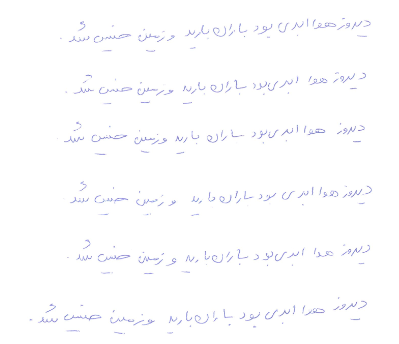 دیروز هوا ابری بود باران بارید و زمین خیس شد.
دیروز هوا ابری بود باران بارید و زمین خیس شد.
دیروز هوا ابری بود باران بارید و زمین خیس شد.
دیروز هوا ابری بود باران بارید و زمین خیس شد
دیروز هوا ابری بود باران بارید و زمین خیس شد.
دیروز هوا ابری بود باران بارید و زمین خیس شد.